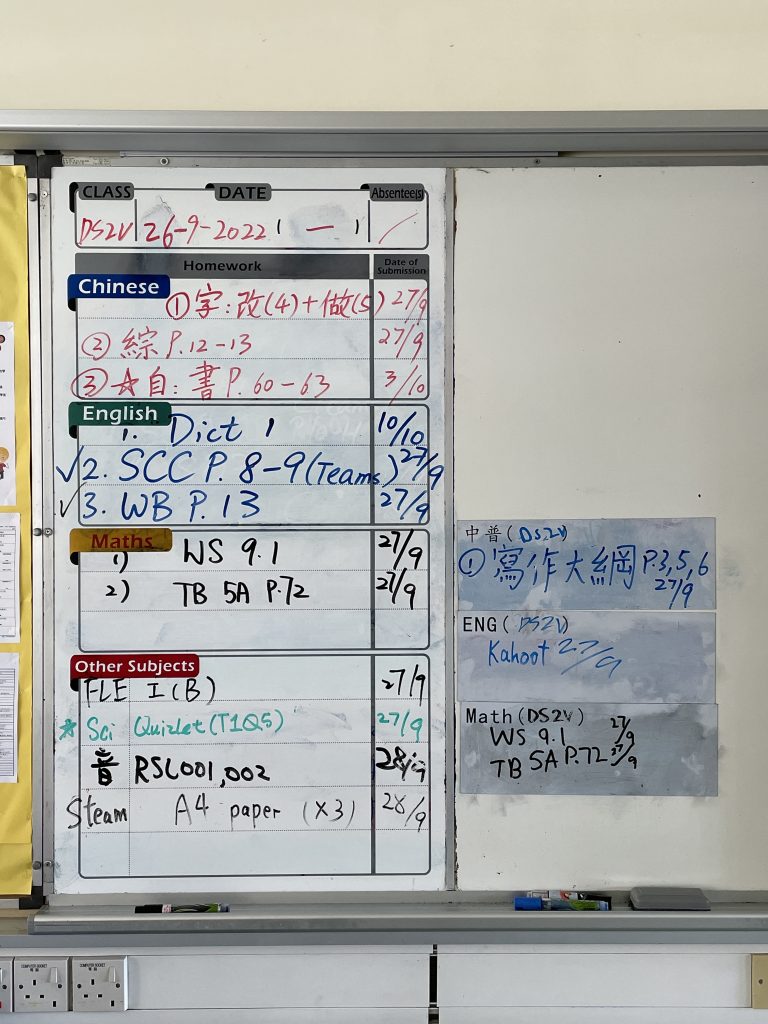 CLASS DATE Absentee(s)
DS2V 26-9-2022 ( 一 ) /
Homework Date of Submission
Chinese
① 字:改(4)+做(5) 27/9
② 綜 P.12-13 27/9
③ ☆自:書 P.60-63 3/10
English
1. Dict 1 10/10
✓2. SCC P. 8-9(Teams) 27/9
✓3. WB P.13 27/9
Maths
1) WS 9.1 27/9
2) TB 5A P.72 27/9
Other Subjects
FLE I(B) 27/9
☆ Sci Quizlet(T1Q5) 27/9
音 RSL001,002 28/9
Steam A4 paper (X3) 28/9
中普(DS2V)
① 寫作大綱 P.3,5,6
27/9
ENG(DS2V)
Kahoot 27/9
Math(DS2V)
WS 9.1 27/9
TB 5A P.72 27/9
COMPUTER SOCKET
COMPUTER SOCKET